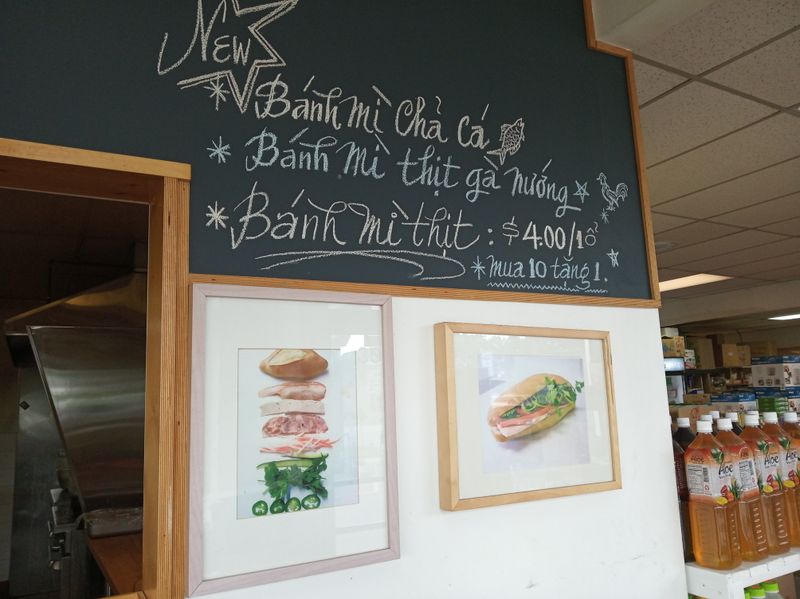 New
* Bánh mì Chả Cá
* Bánh mì thịt gà nướng
* Bánh mì thịt : $4.00/1ổ
* mua 10 tặng 1.
Aloe
Aloe
Aloe